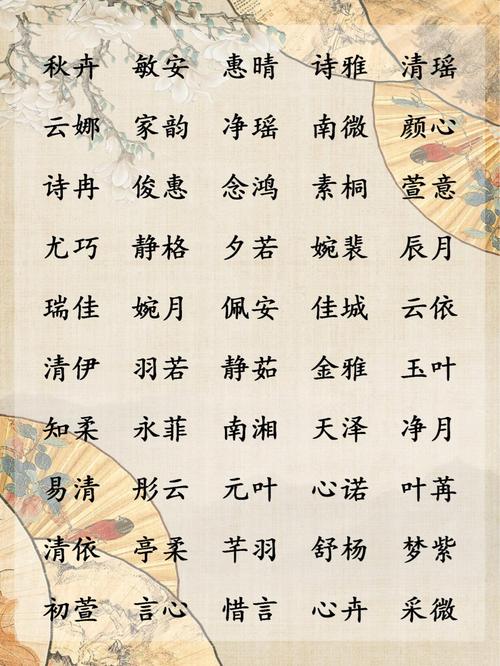 秋卉 敏安 惠晴 诗雅 清瑶
云娜 家韵 净瑶 南微 颜心
诗冉 俊惠 念鸿 素桐 萱意
尤巧 静格 夕若 婉裴 辰月
瑞佳 婉月 佩安 佳城 云依
清伊 羽若 静茹 金雅 玉叶
知柔 永菲 南湘 天泽 净月
易清 彤云 元叶 心诺 叶苒
清依 亭柔 芊羽 舒杨 梦紫
初萱 言心 惜言 心卉 采微